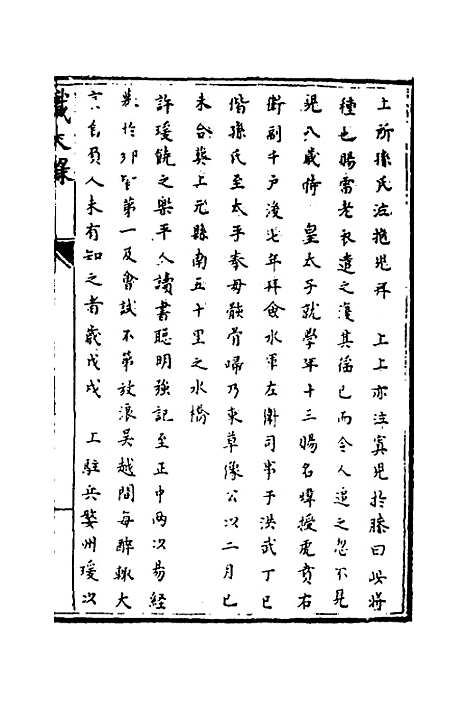 上所孫氏泣抱児拜　上上亦泣寘児扵膝曰此將
種也賜雷老衣遣之復其傜已而令人追之忽不見
児八歳侍　皇太子就學年十三賜名煒授虎賁右
衛副千戸後七年拜僉水軍左衛司事于洪武丁巳
偕孫氏至太平奉母骸骨歸乃束草像公以二月己
未合葬上元縣南五十里之水橋
許瑗饒之樂平人讀書聰明強記至正中兩以易經
於郷皆第一及會試不第放浪吳越間每醉輒大
言自負人未有知之者歳戊戌　上駐兵婺州瑗以